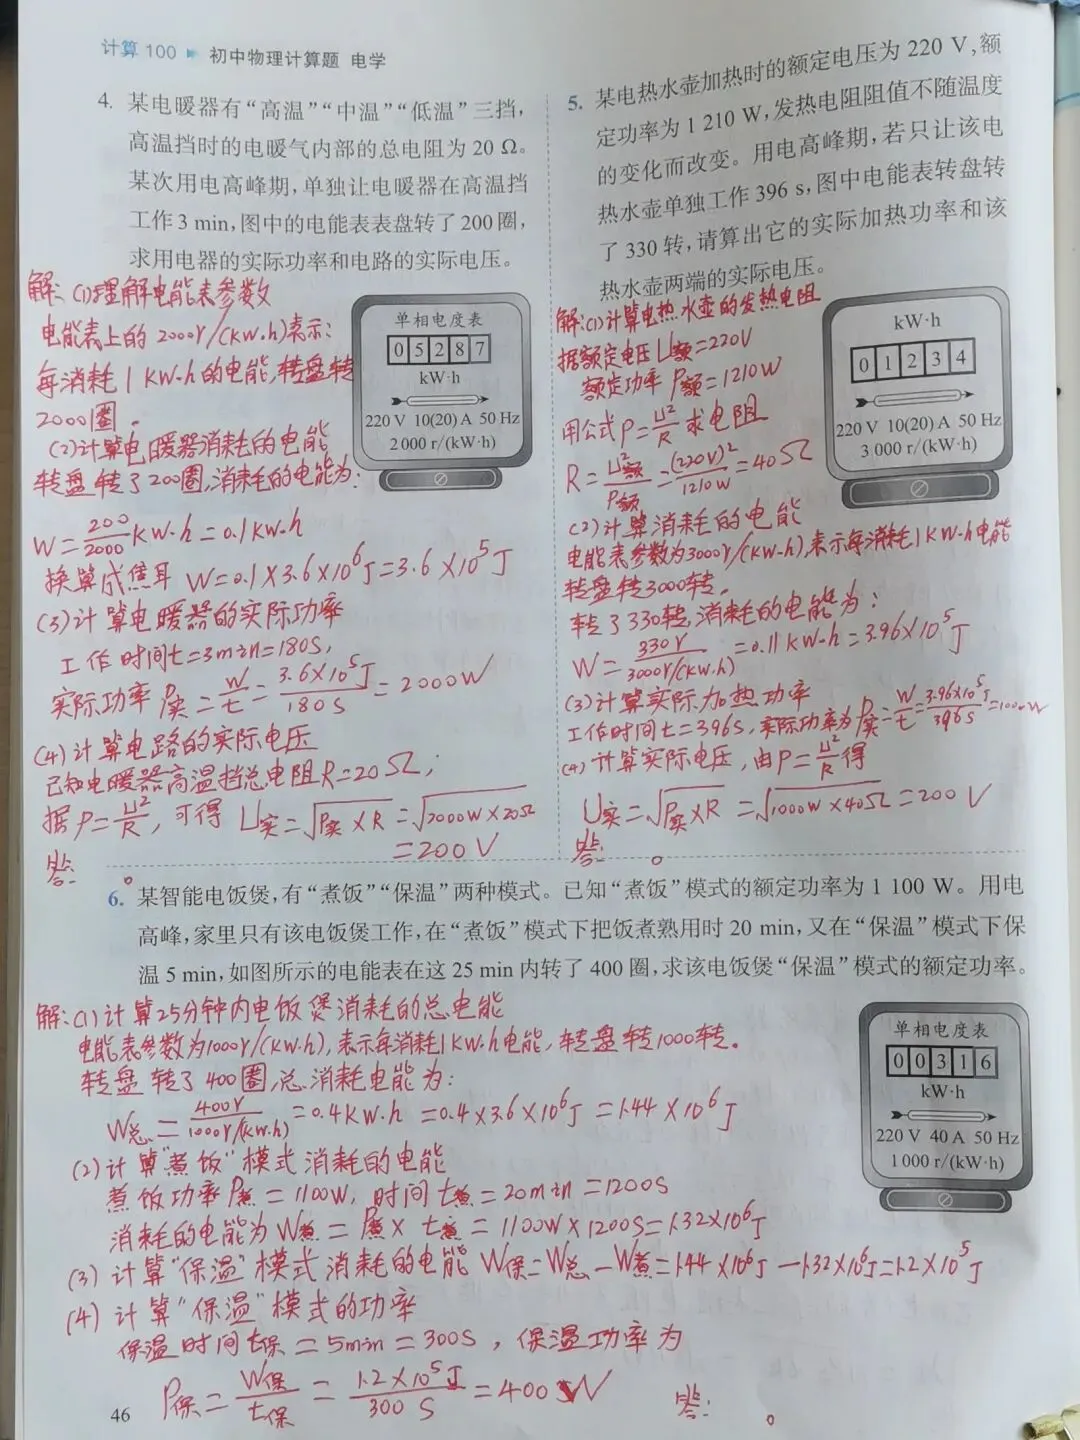 计算 100 初中物理计算题 电学
4. 某电暖器有“高温”“中温”“低温”三挡，
高温挡时的电暖气内部的总电阻为 20 Ω。
某次用电高峰期，单独让电暖器在高温挡
工作 3 min，图中的电能表表盘转了 200 圈，
求用电器的实际功率和电路的实际电压。
解：(1)理解电能表参数
电能表上的 2000r/(KW·h)表示：
每消耗 1 KW·h的电能，转盘转
2000圈。
(2)计算电暖器消耗的电能
转盘转了200圈，消耗的电能为：
W=200/2000 KW·h=0.1KW·h
换算成焦耳 W=0.1×3.6×10⁶J=3.6×10⁵J
(3)计算电暖器的实际功率
工作时间t=3min=180S，
实际功率 P实=W/t=3.6×10⁵J/180S=2000W
(4)计算电路的实际电压
已知电暖器高温挡总电阻R=20Ω；
据P=U²/R，可得 U实=√(P实×R)=√(2000W×20Ω)
=200V
答： 。
单相电度表
0 5 2 8 7
kW·h
220 V 10(20) A 50 Hz
2 000 r/(kW·h)
5. 某电热水壶加热时的额定电压为 220 V，额
定功率为 1 210 W，发热电阻阻值不随温度
的变化而改变。用电高峰期，若只让该电
热水壶单独工作 396 s，图中电能表转盘转
了 330 转，请算出它的实际加热功率和该
热水壶两端的实际电压。
解：(1)计算电热水壶的发热电阻
据额定电压U额=220V
额定功率 P额=1210W
用公式P=U²/R 求电阻
R=U²额/P额=(220V)²/1210W=40Ω
(2)计算消耗的电能
电能表参数为3000r/(KW·h)，表示每消耗1KW·h电能
转盘转3000转。
转了330转，消耗的电能为：
W=330r/3000r/(KW·h)=0.11KW·h=3.96×10⁵J
(3)计算实际加热功率
工作时间t=396S，实际功率为P实=W/t=3.96×10⁵J/396S=1000W
(4)计算实际电压，由P=U²/R得
U实=√(P实×R)=√(1000W×40Ω)=200V
答： 。
kW·h
0 1 2 3 4
220 V 10(20) A 50 Hz
3 000 r/(kW·h)
6. 某智能电饭煲，有“煮饭”“保温”两种模式。已知“煮饭”模式的额定功率为 1 100 W。用电
高峰，家里只有该电饭煲工作，在“煮饭”模式下把饭煮熟用时 20 min，又在“保温”模式下保
温 5 min，如图所示的电能表在这 25 min 内转了 400 圈，求该电饭煲“保温”模式的额定功率。
解：(1)计算25分钟内电饭煲消耗的总电能
电能表参数为1000r/(KW·h)，表示每消耗1KW·h电能，转盘转1000转。
转盘转了400圈，总消耗电能为：
W总=400r/1000r/(KW·h)=0.4KW·h=0.4×3.6×10⁶J=1.44×10⁶J
(2)计算“煮饭”模式消耗的电能
煮饭功率P煮=1100W，时间t煮=20min=1200S
消耗的电能为W煮=P煮×t煮=1100W×1200S=1.32×10⁶J
(3)计算“保温”模式消耗的电能 W保=W总-W煮=1.44×10⁶J-1.32×10⁶J=1.2×10⁵J
(4)计算“保温”模式的功率
保温时间t保=5min=300S，保温功率为
P保=W保/t保=1.2×10⁵J/300S=400W
答： 。
单相电度表
0 0 3 1 6
kW·h
220 V 40 A 50 Hz
1 000 r/(kW·h)
46